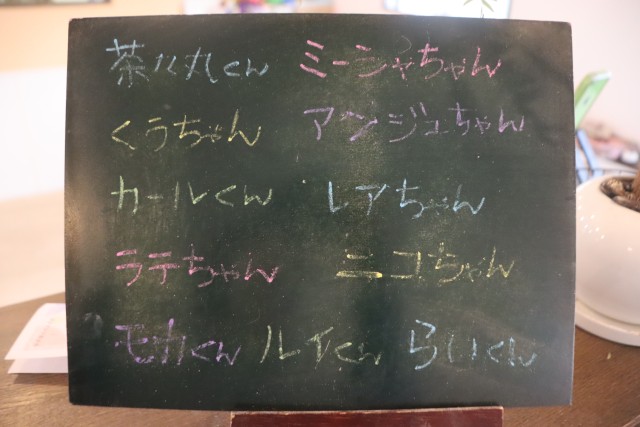 茶々丸くん ミーシャちゃん
くうちゃん アンジュちゃん
カールくん レアちゃん
ラテちゃん ニコちゃん
モカくん ルイくん らいくん